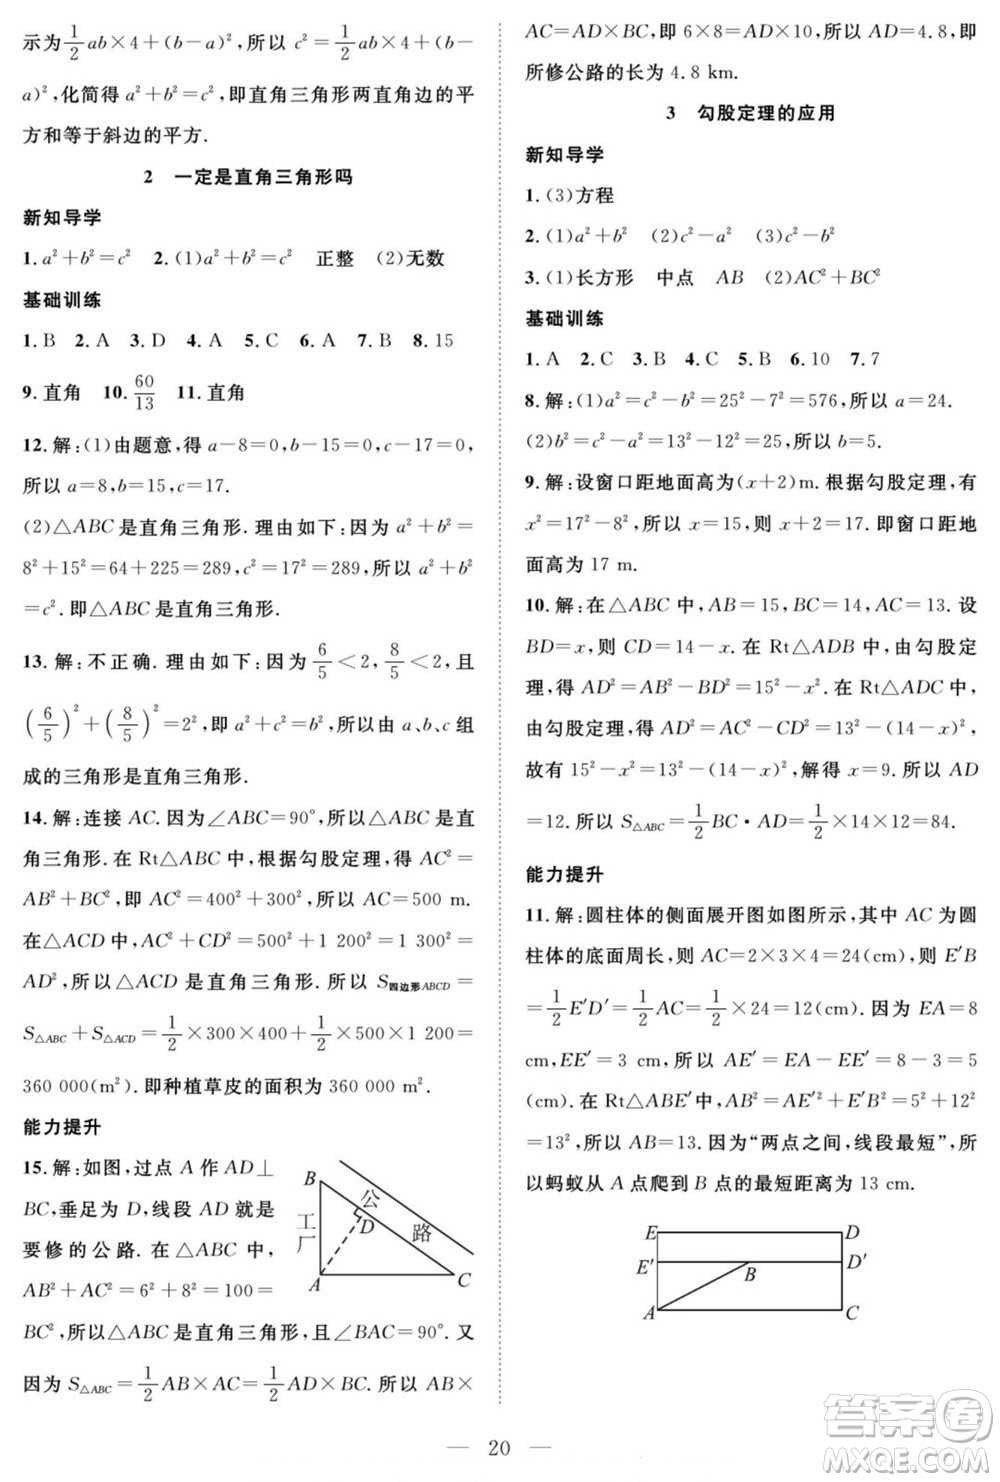 示为1/2ab×4+(b-a)²,所以 c²=1/2ab×4+(b-
a)²,化简得 a²+b²=c²,即直角三角形两直角边的平
方和等于斜边的平方.
2 一定是直角三角形吗
新知导学
1.a²+b²=c² 2.(1)a²+b²=c² 正整 (2)无数
基础训练
1.B 2.A 3.D 4.C 5.C 6.A 7.B 8.15
9.直角 10.60/13 11.直角
12.解:(1)由题意,得 a-8=0,b-15=0,c-17=0,
所以 a=8,b=15,c=17.
(2)△ABC 是直角三角形.理由如下:因为 a²+b²=
8²+15²=64+225=289,c²=17²=289,所以 a²+b²
=c².即△ABC 是直角三角形.
13.解:不正确.理由如下:因为6/5<2,8/5<2,且
(6/5)²+(8/5)²=2²,即 a²+c²=b²,所以 a、b、c 组
成的三角形是直角三角形.
14.解:连接 AC.因为∠ABC=90°,所以△ABC 是直
角三角形.在 Rt△ABC 中,根据勾股定理,得 AC²=
AB²+BC²,即 AC²=400²+300²,所以 AC=500 m.
在△ACD 中,AC²+CD²=500²+1 200²=1 300²=
AD²,所以△ACD 是直角三角形.所以 S四边形ABCD=
S△ABC+S△ACD=1/2×300×400+1/2×500×1 200=
360 000(m²).即种植草皮的面积为 360 000 m².
能力提升
15.解:如图,过点 A 作 AD⊥
BC,垂足为 D,线段 AD 就是
要修的公路.在△ABC 中,
AB²+AC²=6²+8²=100=
BC²,所以△ABC 是直角三角形,且∠BAC=90°.又
因为 S△ABC=1/2AB×AC=1/2AD×BC.所以 AB×
B
公
工
D
路
厂
A
C
AC=AD×BC,即 6×8=AD×10,所以 AD=4.8,即
所修公路的长为 4.8 km.
3 勾股定理的应用
新知导学
1.(3)方程
2.(1)a²+b² (2)c²-a² (3)c²-b²
3.(1)长方形 中点 AB (2)AC²+BC²
基础训练
1.A 2.C 3.B 4.C 5.B 6.10 7.7
8.解:(1)a²=c²-b²=25²-7²=576,所以 a=24.
(2)b²=c²-a²=13²-12²=25,所以 b=5.
9.解:设窗口距地面高为(x+2)m.根据勾股定理,有
x²=17²-8²,所以 x=15,则 x+2=17.即窗口距地
面高为 17 m.
10.解:在△ABC 中,AB=15,BC=14,AC=13.设
BD=x,则 CD=14-x.在 Rt△ADB 中,由勾股定
理,得 AD²=AB²-BD²=15²-x².在 Rt△ADC 中,
由勾股定理,得 AD²=AC²-CD²=13²-(14-x)²,
故有 15²-x²=13²-(14-x)²,解得 x=9.所以 AD
=12.所以 S△ABC=1/2BC·AD=1/2×14×12=84.
能力提升
11.解:圆柱体的侧面展开图如图所示,其中 AC 为圆
柱体的底面周长,则 AC=2×3×4=24(cm),则 E′B
=1/2E′D′=1/2AC=1/2×24=12(cm).因为 EA=8
cm,EE′=3 cm,所以 AE′=EA-EE′=8-3=5
(cm).在 Rt△ABE′中,AB²=AE′²+BE′²=5²+12²
=13²,所以 AB=13.因为“两点之间,线段最短”,所
以蚂蚁从 A 点爬到 B 点的最短距离为 13 cm.
E
D
E′
B
D′
A
C
20
答案圈
MXQE.COM